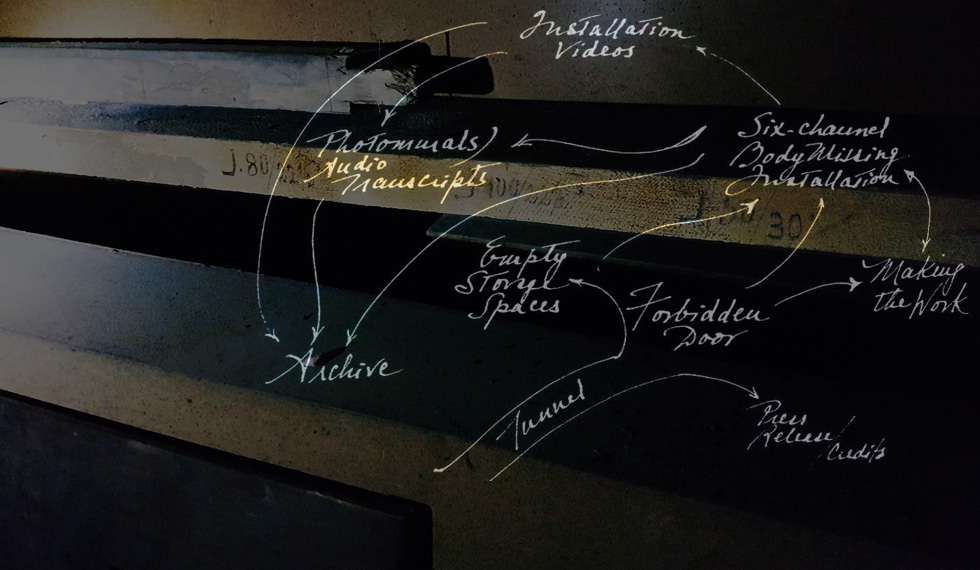 Installation
Videos
Photomurals)
Audio
Transcripts
Six-channel
BodyMissing
Installation
Empty
Storage
Spaces
Forbidden
Door
Making
the Work
Archive
Tunnel
Press
Release/
Credits
J.80
30